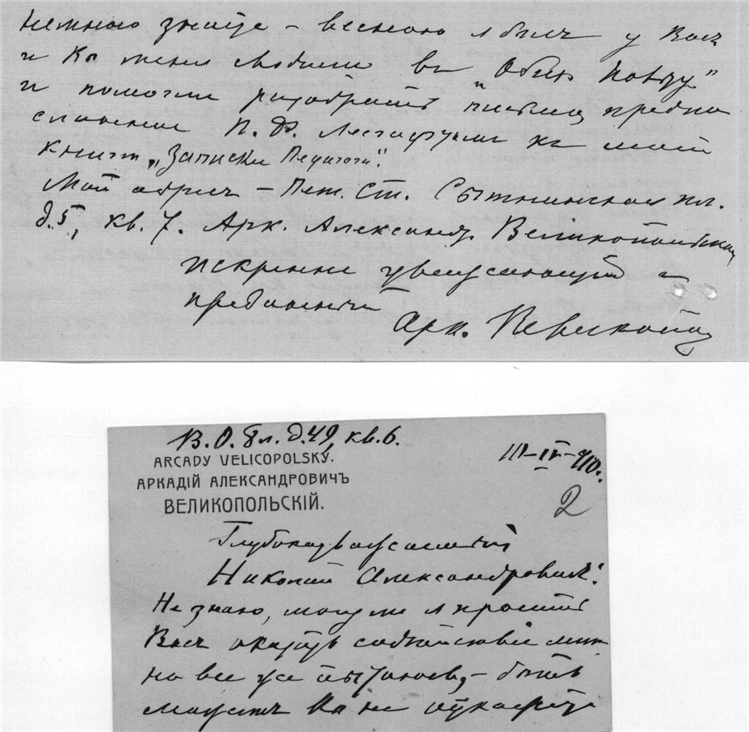 немного знаете – весною я был у Васъ
и Вы меня любили въ
и помогли разобрать письма
П. Ф. Лесгафтомъ къ моей
книгѣ „Записки Педагога“.
Мой адресъ – Пет. Ст. Сытнинская пл.
д. 5, кв. 7. Арк. Александр. Великопольскому
Искренне уважающій и
преданный
Арк. Великопол
В.О. 8 л. д. 49, кв. 6.
ARCADY VELICOPOLSKÝ.
АРКАДІЙ АЛЕКСАНДРОВИЧЪ
ВЕЛИКОПОЛЬСКІЙ.
2
Глубокоуважаемый
Николай Александровичъ!
Не знаю, могу ли я просить
Васъ оказать содѣйствіе мнѣ
но все же пытаюсь, – быть
можетъ Вы не откажете